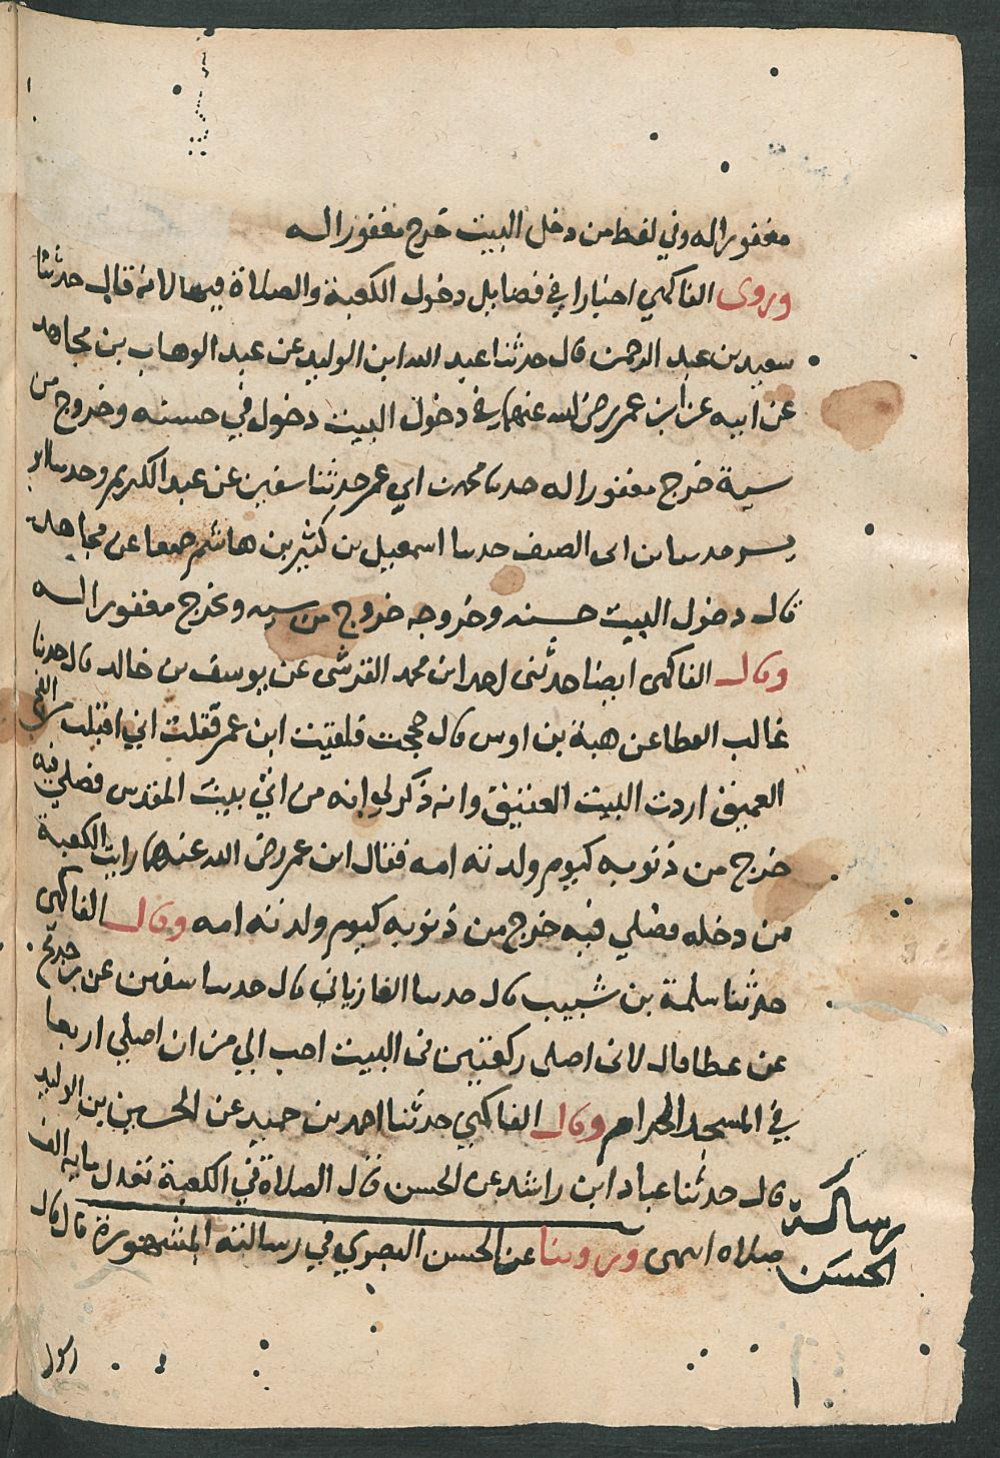 مغفورا له وفي لفظ من دخل البيت خرج مغفورا له
وروى الفاكهي اخبارا في فضايل دخول الكعبة والصلاة فيها لانه قال حدثنا
سعيد بن عبد الرحمن قال حدثنا عبد الله ابن الوليد عن عبد الوهاب بن مجاهد
عن ابيه عن ابن عمر رضي الله عنهما في دخول البيت دخول في حسنه وخروج من
سية خرج مغفورا له حدثنا محمد بن ابي عمر حدثنا سفين عن عبد الكريم وحدثنا ابو
بشر حدثنا بن ابى الصيف حدثنا اسمعيل بن كثير بن هاشم جميعا عن مجاهد
قال دخول البيت حسنه وخروجه خروج من سيه ويخرج مغفورا له
وقال الفاكهى ايضا حدثنى احد ابن محمد القرشى عن يوسف بن خالد قال حدثنا
غالب القطا عن هبة بن اوس قال حججت فلقيت ابن عمر فقلت اني اقبلت من الفج
العميق اردت البيت العتيق وانه ذكر لي انه من اتى بيت المقدس فصلي فيه
خرج من ذنوبه كيوم ولدته امه فقال ابن عمر رضي الله عنهما رايت الكعبة
من دخله فصلي فيه خرج من ذنوبه كيوم ولدته امه وقال الفاكهى
حدثنا سلمة بن شبيب قال حدثنا الفازياني قال حدثنا سفين عن بن جريج
عن عطا قال لانى اصلى ركعتين فى البيت احب الي من ان اصلي اربعا
في المسجد الحرام وقال الفاكهي حدثنا احمد بن حميد عن الحسين بن الوليد
قال حدثنا عباد ابن راشد عن الحسن قال الصلاة في الكعبة تعدل مايه الف
صلاه انتهى وروينا عن الحسن البصري في رسالته المشهورة قال قال
رسالة
الحسن
رسول